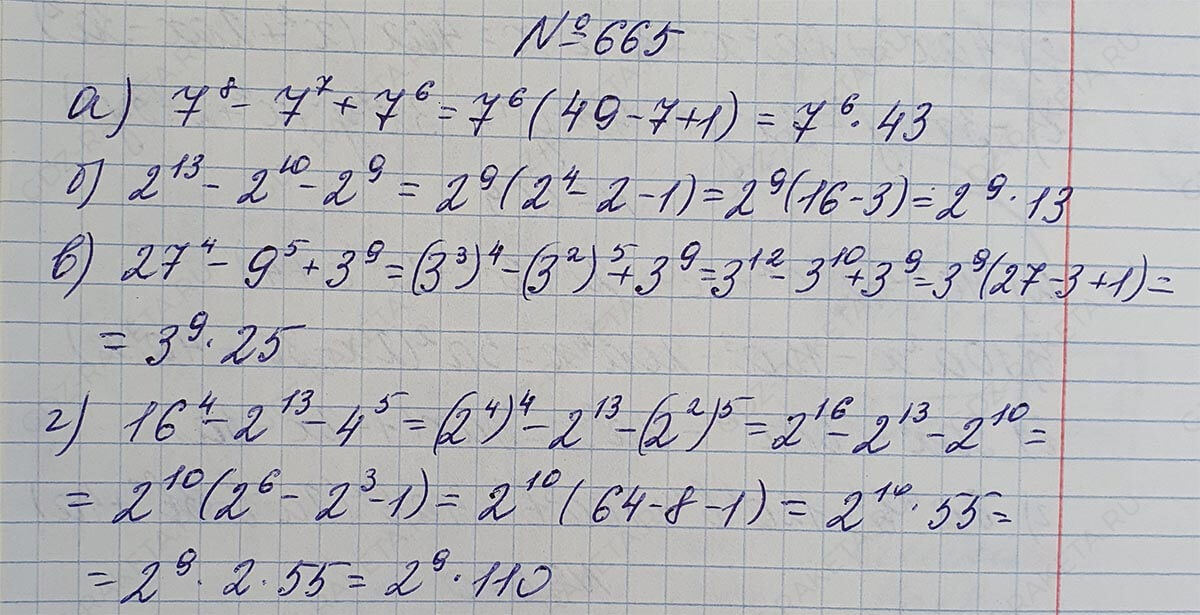 №665
а) 7⁸ - 7⁷ + 7⁶ = 7⁶ (49 - 7 + 1) = 7⁶ · 43
б) 2¹³ - 2¹⁰ - 2⁹ = 2⁹ (2⁴ - 2 - 1) = 2⁹ (16 - 3) = 2⁹ · 13
в) 27⁴ - 9⁵ + 3⁹ = (3³)⁴ - (3²)⁵ + 3⁹ = 3¹² - 3¹⁰ + 3⁹ = 3⁹ (27 - 3 + 1) =
= 3⁹ · 25
г) 16⁴ - 2¹³ - 4⁵ = (2⁴)⁴ - 2¹³ - (2²)⁵ = 2¹⁶ - 2¹³ - 2¹⁰ =
= 2¹⁰ (2⁶ - 2³ - 1) = 2¹⁰ (64 - 8 - 1) = 2¹⁰ · 55 =
= 2⁹ · 2 · 55 = 2⁹ · 110